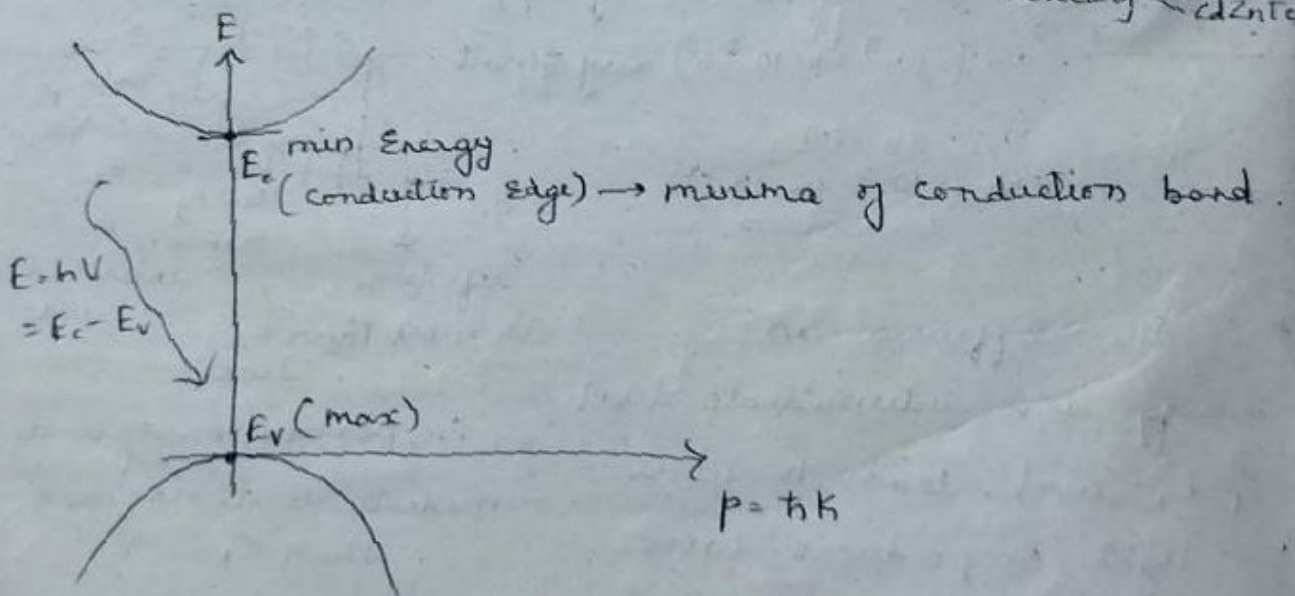 CdZnTe
E
min. Energy.
Ec (conduction Edge) → minima of conduction band.
E = hν
= Ec - Ev
Ev (max).
p = ħk